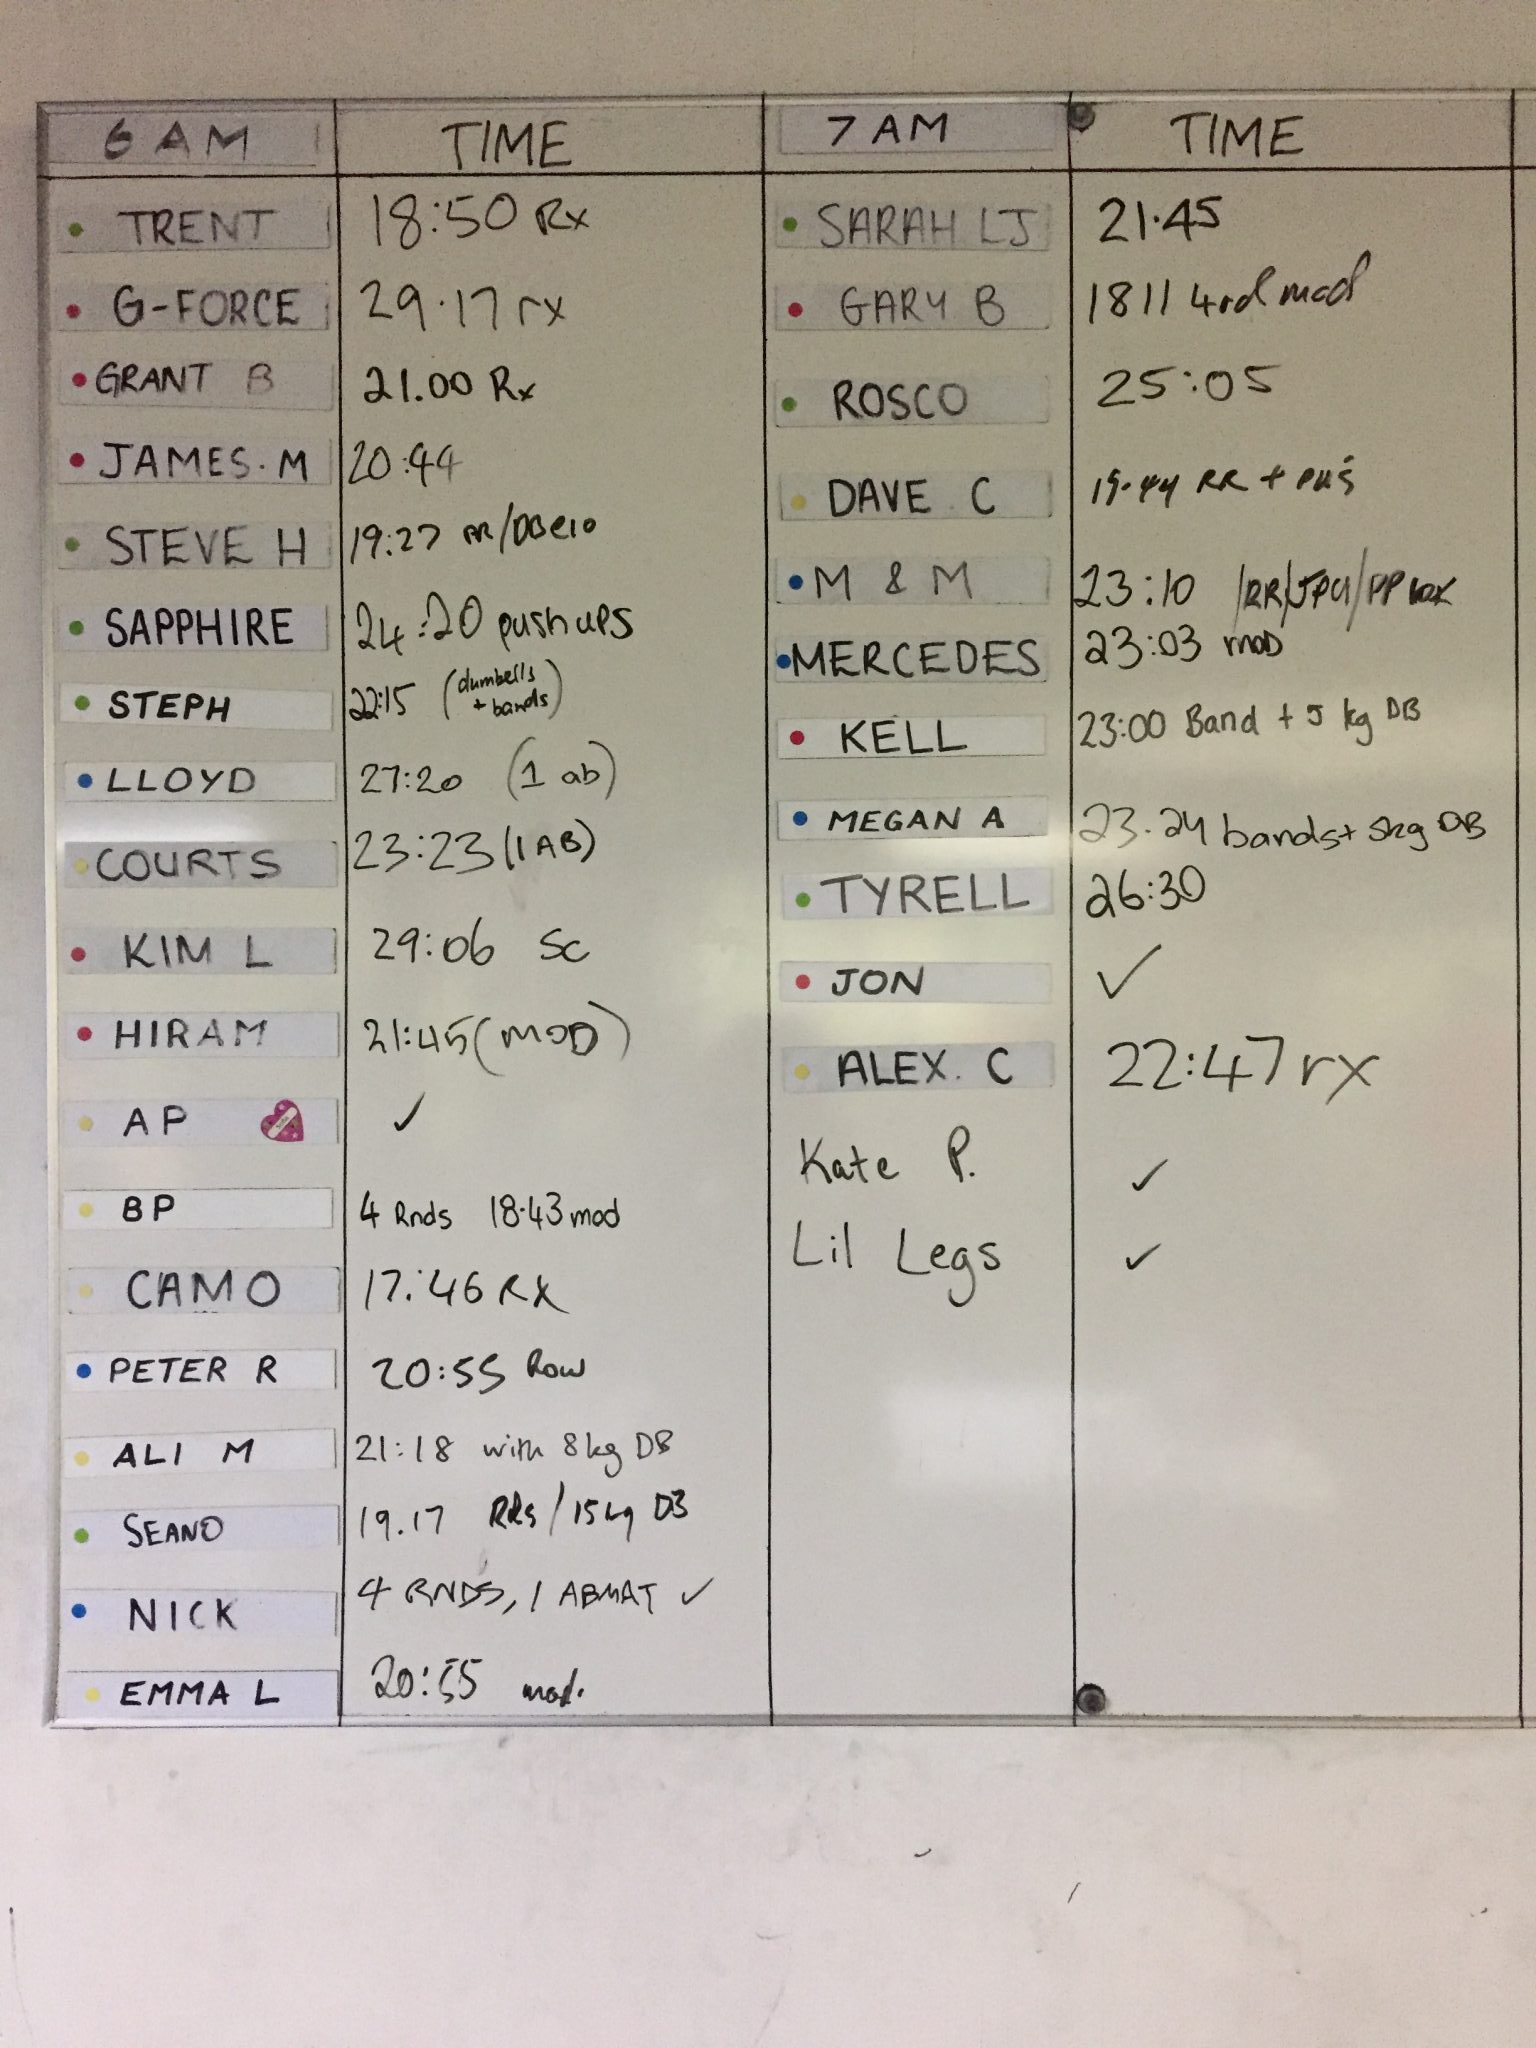 6 AM TIME 7 AM TIME
TRENT 18:50 Rx
G-FORCE 29.17 rx
GRANT B 21.00 Rx
JAMES. M 20:44
STEVE H 19:27
SAPPHIRE 24:20 push ups
STEPH 22:15 (dumbells
+ bands)
LLOYD 27:20 (1 ab)
COURTS 23:23 (1 AB)
KIM L 29:06 Sc
HIRAM 21:45 (MOD)
AP ✓
BP 4 Rnds 18.43 mod
CAMO 17:46 RX
PETER R 20:55 Row
ALI M 21:18 with 8kg DB
SEANO 19.17 RRs / 15kg DB
NICK 4 RNDS, 1 ABMAT ✓
EMMA L 20:55 mod.
SARAH LJ 21.45
GARY B 1811 4rd mod
ROSCO 25:05
DAVE C 19.44 RR +
M & M 23:10
MERCEDES 23:03 MOD
KELL 23:00 Band + 5 kg DB
MEGAN A 23.24 bands + 5kg DB
TYRELL 26:30
JON ✓
ALEX. C 22:47 rx
Kate P. ✓
Lil Legs ✓